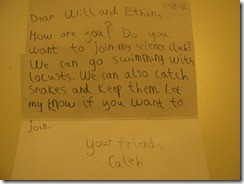 1-18-
Dear Will and Ethan,
How are you? Do you
want to join my science club?
We can go swimming with
locusts. We can also catch
snakes and keep them. Let
my know if you want to
join.
Your friend,
Caleb